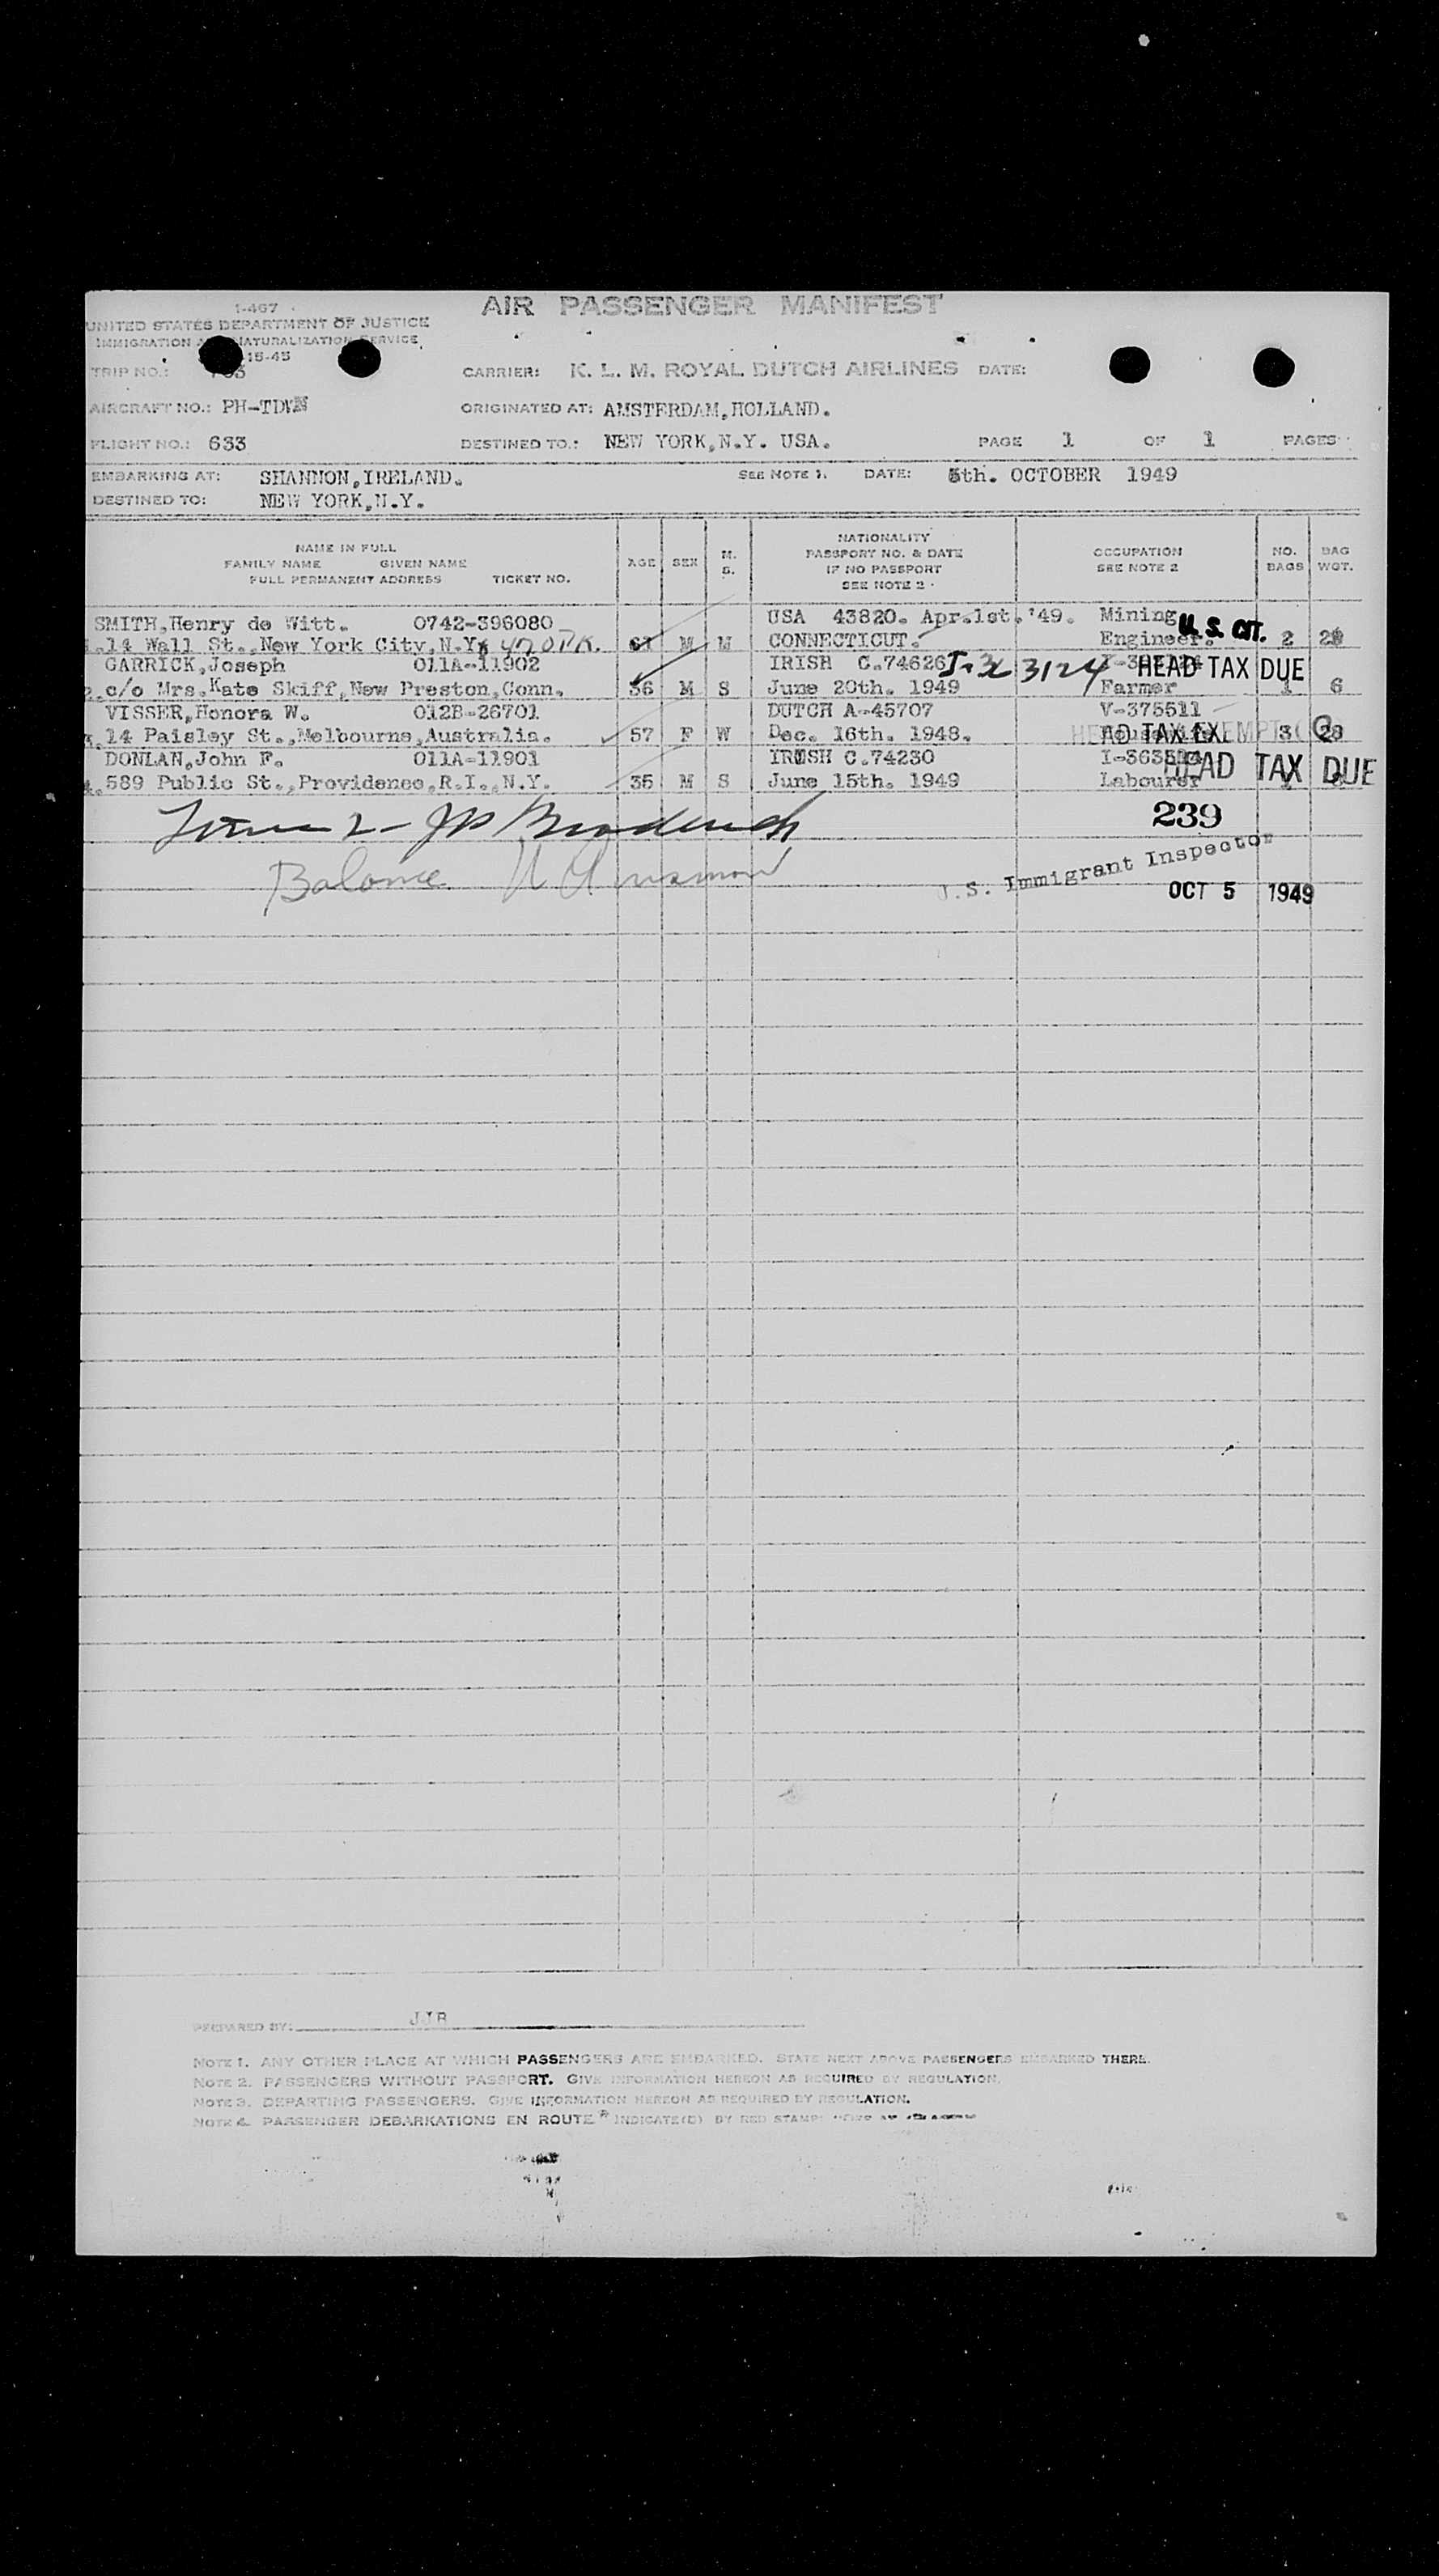 1-467
AIR PASSENGER MANIFEST
UNITED STATES DEPARTMENT OF JUSTICE
IMMIGRATION NATURALIZATION SERVICE
15-45
TRIP NO.: CARRIER: K. L. M. ROYAL DUTCH AIRLINES DATE:
AIRCRAFT NO.: PH-TDW ORIGINATED AT: AMSTERDAM,HOLLAND.
FLIGHT NO.: 633 DESTINED TO.: NEW YORK,N.Y. USA. PAGE 1 OF 1 PAGES
EMBARKING AT: SHANNON,IRELAND. SEE NOTE 1. DATE: 5th. OCTOBER 1949
DESTINED TO: NEW YORK,N.Y.
NAME IN FULL
FAMILY NAME GIVEN NAME
FULL PERMANENT ADDRESS TICKET NO.
AGE SEX M. S.
NATIONALITY
PASSPORT NO. & DATE
IF NO PASSPORT
SEE NOTE 2
OCCUPATION
SEE NOTE 2
NO. BAGS
BAG WGT.
SMITH,Henry de Witt. 0742-396080 USA 43820. Apr.1st.'49. Mining
1.14 Wall St.,New York City,N.Y. 61 M M CONNECTICUT. Engineer. U.S. CIT. 2
GARRICK,Joseph 011A-11902 IRISH C.74626 HEAD TAX DUE
2.c/o Mrs.Kate Skiff,New Preston,Conn. 36 M S June 20th. 1949 Farmer 1 6
VISSER,Honora W. 012B-26701 DUTCH A-45707 V-375511
3.14 Paisley St.,Melbourne,Australia. 57 F W Dec. 16th. 1948. HEAD TAX EXEMPT 3 28
DONLAN,John F. 011A-11901 IRISH C.74230
4.589 Public St.,Providence,R.I.,N.Y. 35 M S June 15th. 1949 Labourer HEAD TAX DUE
239
Balance
U.S. Immigrant Inspector
OCT 5 1949
PREPARED BY: JJR
NOTE 1. ANY OTHER PLACE AT WHICH PASSENGERS ARE EMBARKED. STATE NEXT ABOVE PASSENGERS EMBARKED THERE.
NOTE 2. PASSENGERS WITHOUT PASSPORT. GIVE INFORMATION HEREON AS REQUIRED BY REGULATION.
NOTE 3. DEPARTING PASSENGERS. GIVE INFORMATION HEREON AS REQUIRED BY REGULATION.
NOTE 4. PASSENGER DEBARKATIONS EN ROUTE INDICATE(D) BY RED STAMP: